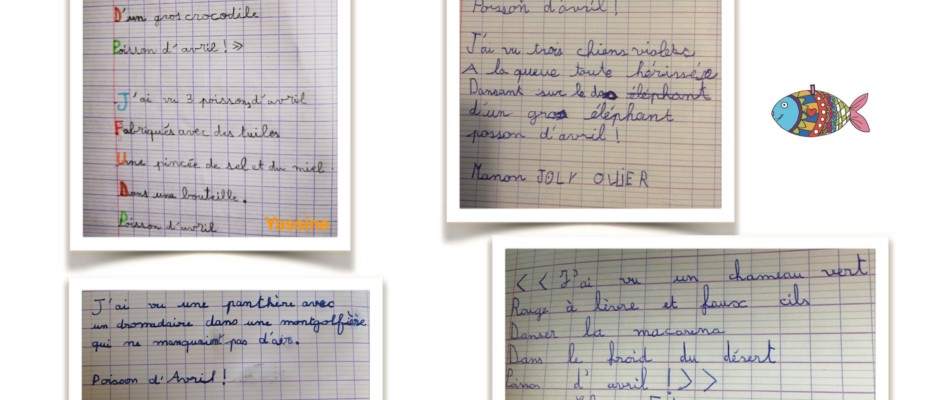 D'un gros crocodile
Poisson d'avril ! »
J'ai vu 3 poissons d'avril
Fabriqués avec des tuiles
Une pincée de sel et du miel.
Dans une bouteille.
Poisson d'avril
Yassine
Poisson d'avril !
J'ai vu trois chiens violets
A la queue toute hérissée
Dansant sur le do éléphant
d'un gros éléphant
posson d'avril !
Manon JOLY OLLIER
J'ai vu une panthère avec
un dromadaire dans une montgolfière
qui ne manquait pas d'airs.
Poisson d'Avril !
< < J'ai vu un chameau vert
Rouge à lèvre et faux cils
Danser la macarena
Dans le froid du désert
d'avril ! > >